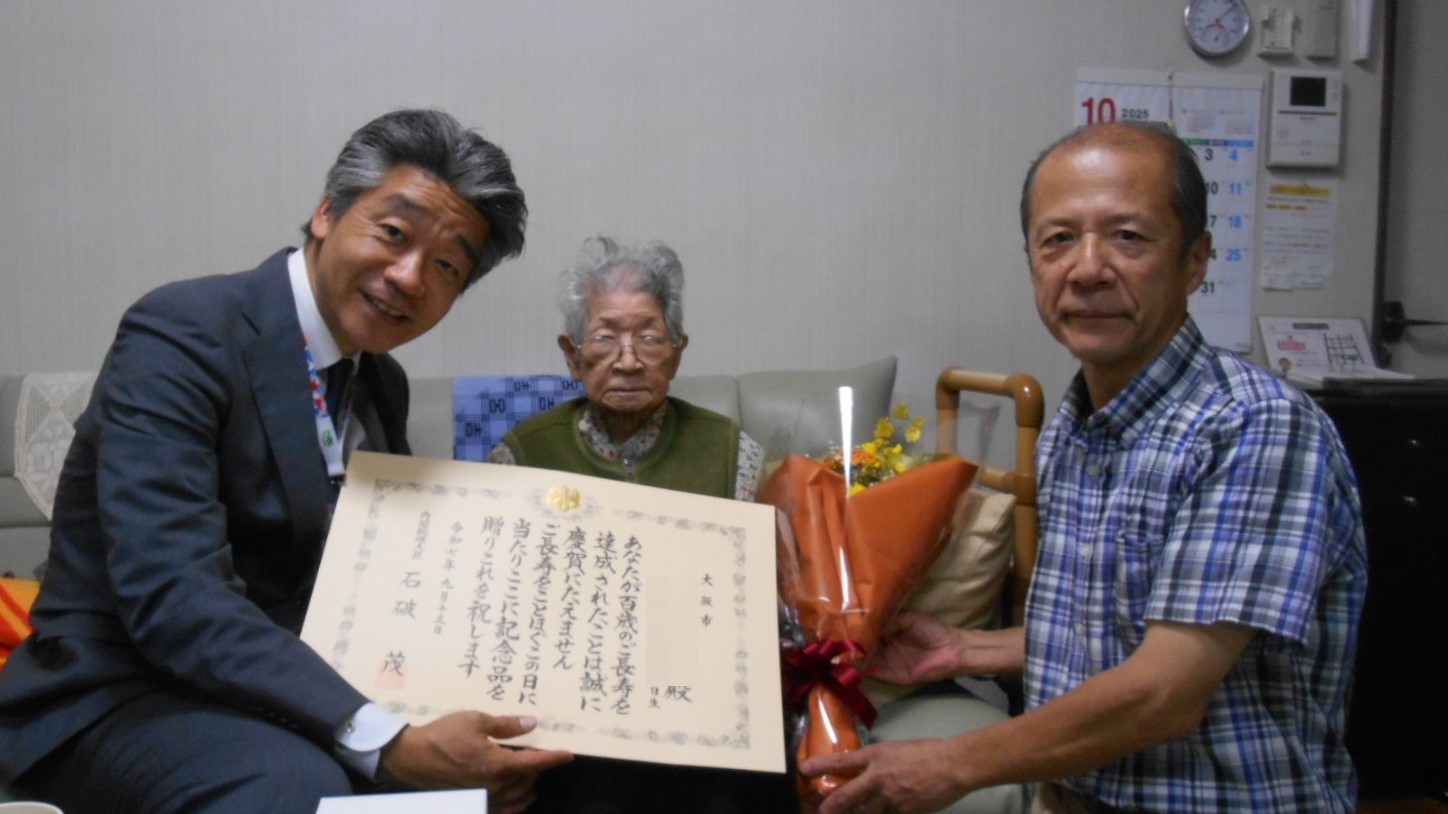 大阪市
殿
日生
あなたが百歳のご長寿を
達成されたことは誠に
慶賀にたえません
ご長寿をことほぐこの日に
当たりここに記念品を
贈りこれを祝します
令和七年九月十五日
内閣総理大臣 石破 茂
10 2025
3 4
10 11
17 18
24 25
31